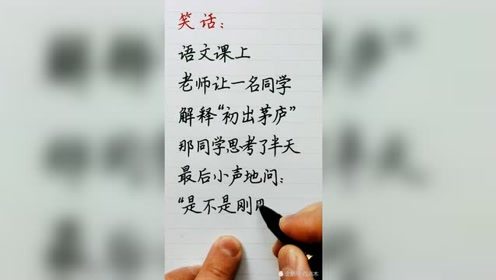 笑话：
语文课上
老师让一名同学
解释“初出茅庐”
那同学思考了半天
最后小声地问：
“是不是刚